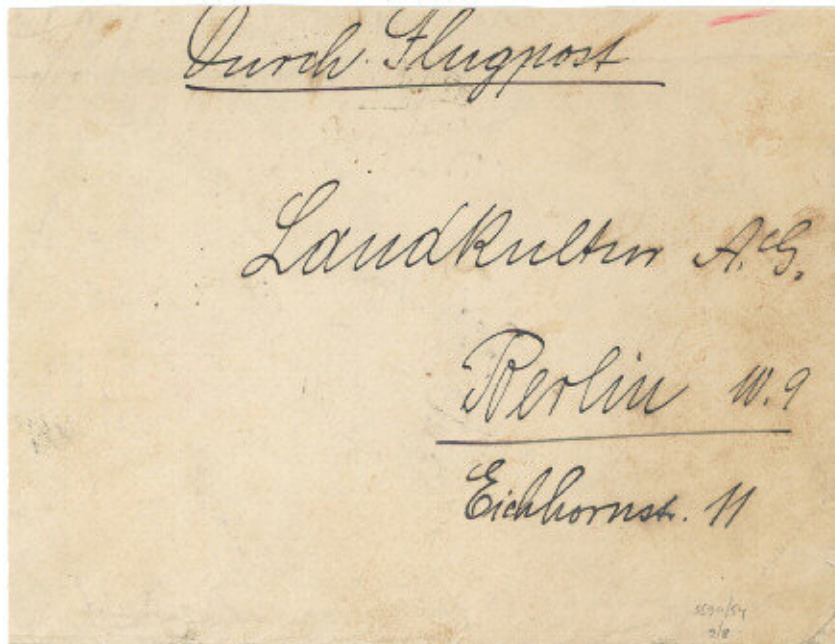 Durch Flugpost
Landkultur A.G.
Berlin W.9
Eichhornstr. 11